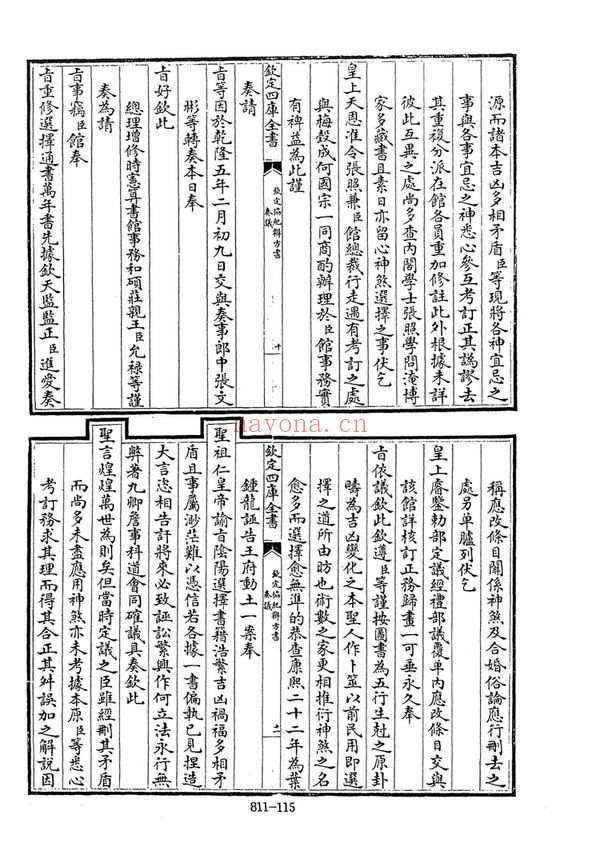 源而諸本吉凶多相矛盾臣等現將各神宜忌之
事與各事宜忌之神悉心參互考訂正其譌謬去
其重複分派在館各員重加修註此外根據未詳
彼此互異之處尚多查内閣學士張照學問淹博
家多藏書且素日亦留心神煞選擇之事伏乞
皇上天恩准令張照兼臣館總裁行走遇有考訂之處
與梅瑴成何國宗一同商酌辦理於臣館事務實
有裨益為此謹
欽定四庫全書
欽定協紀辨方書
奏議
十
奏請
旨等因於乾隆五年二月初九日交與奏事郎中張文
彬等轉奏本日奉
旨好欽此
總理增修時憲算書館事務和碩莊親王臣允祿等謹
奏為請
旨事竊臣館奉
旨重修選擇通書萬年書先據欽天監監正臣進愛奏
稱應改條目關係神煞及合婚俗論應行刪去之
處另单臚列伏乞
皇上睿鑒勅部定議經禮部議覆单内應改條目交與
該館詳核訂正務歸畫一可垂永久奉
旨依議欽此欽遵臣等謹按圖書為五行生尅之原卦
疇為吉凶變化之本聖人作卜筮以前民用即選
擇之道所由昉也術數之家更相推衍神煞之名
愈多而選擇愈無凖的恭查康熙二十二年為葉
欽定四庫全書
欽定協紀辨方書
奏議
十一
鍾龍誣告王府動土一案奉
聖祖仁皇帝諭旨陰陽選擇書籍浩繁吉凶禍福多相矛
盾且事屬渺茫難以憑信若各據一書偏執已見捏造
大言恣相告訐將來必致誣訟繁興作何立法永行無
弊著九卿詹事科道會同確議具奏欽此
聖言煌煌萬世為則矣但當時定議之臣雖經刪其矛盾
而尚多未盡應用神煞亦未考據本原臣等悉心
考訂務求其理而得其合正其舛誤加之解說因
nayona.cn
811-115